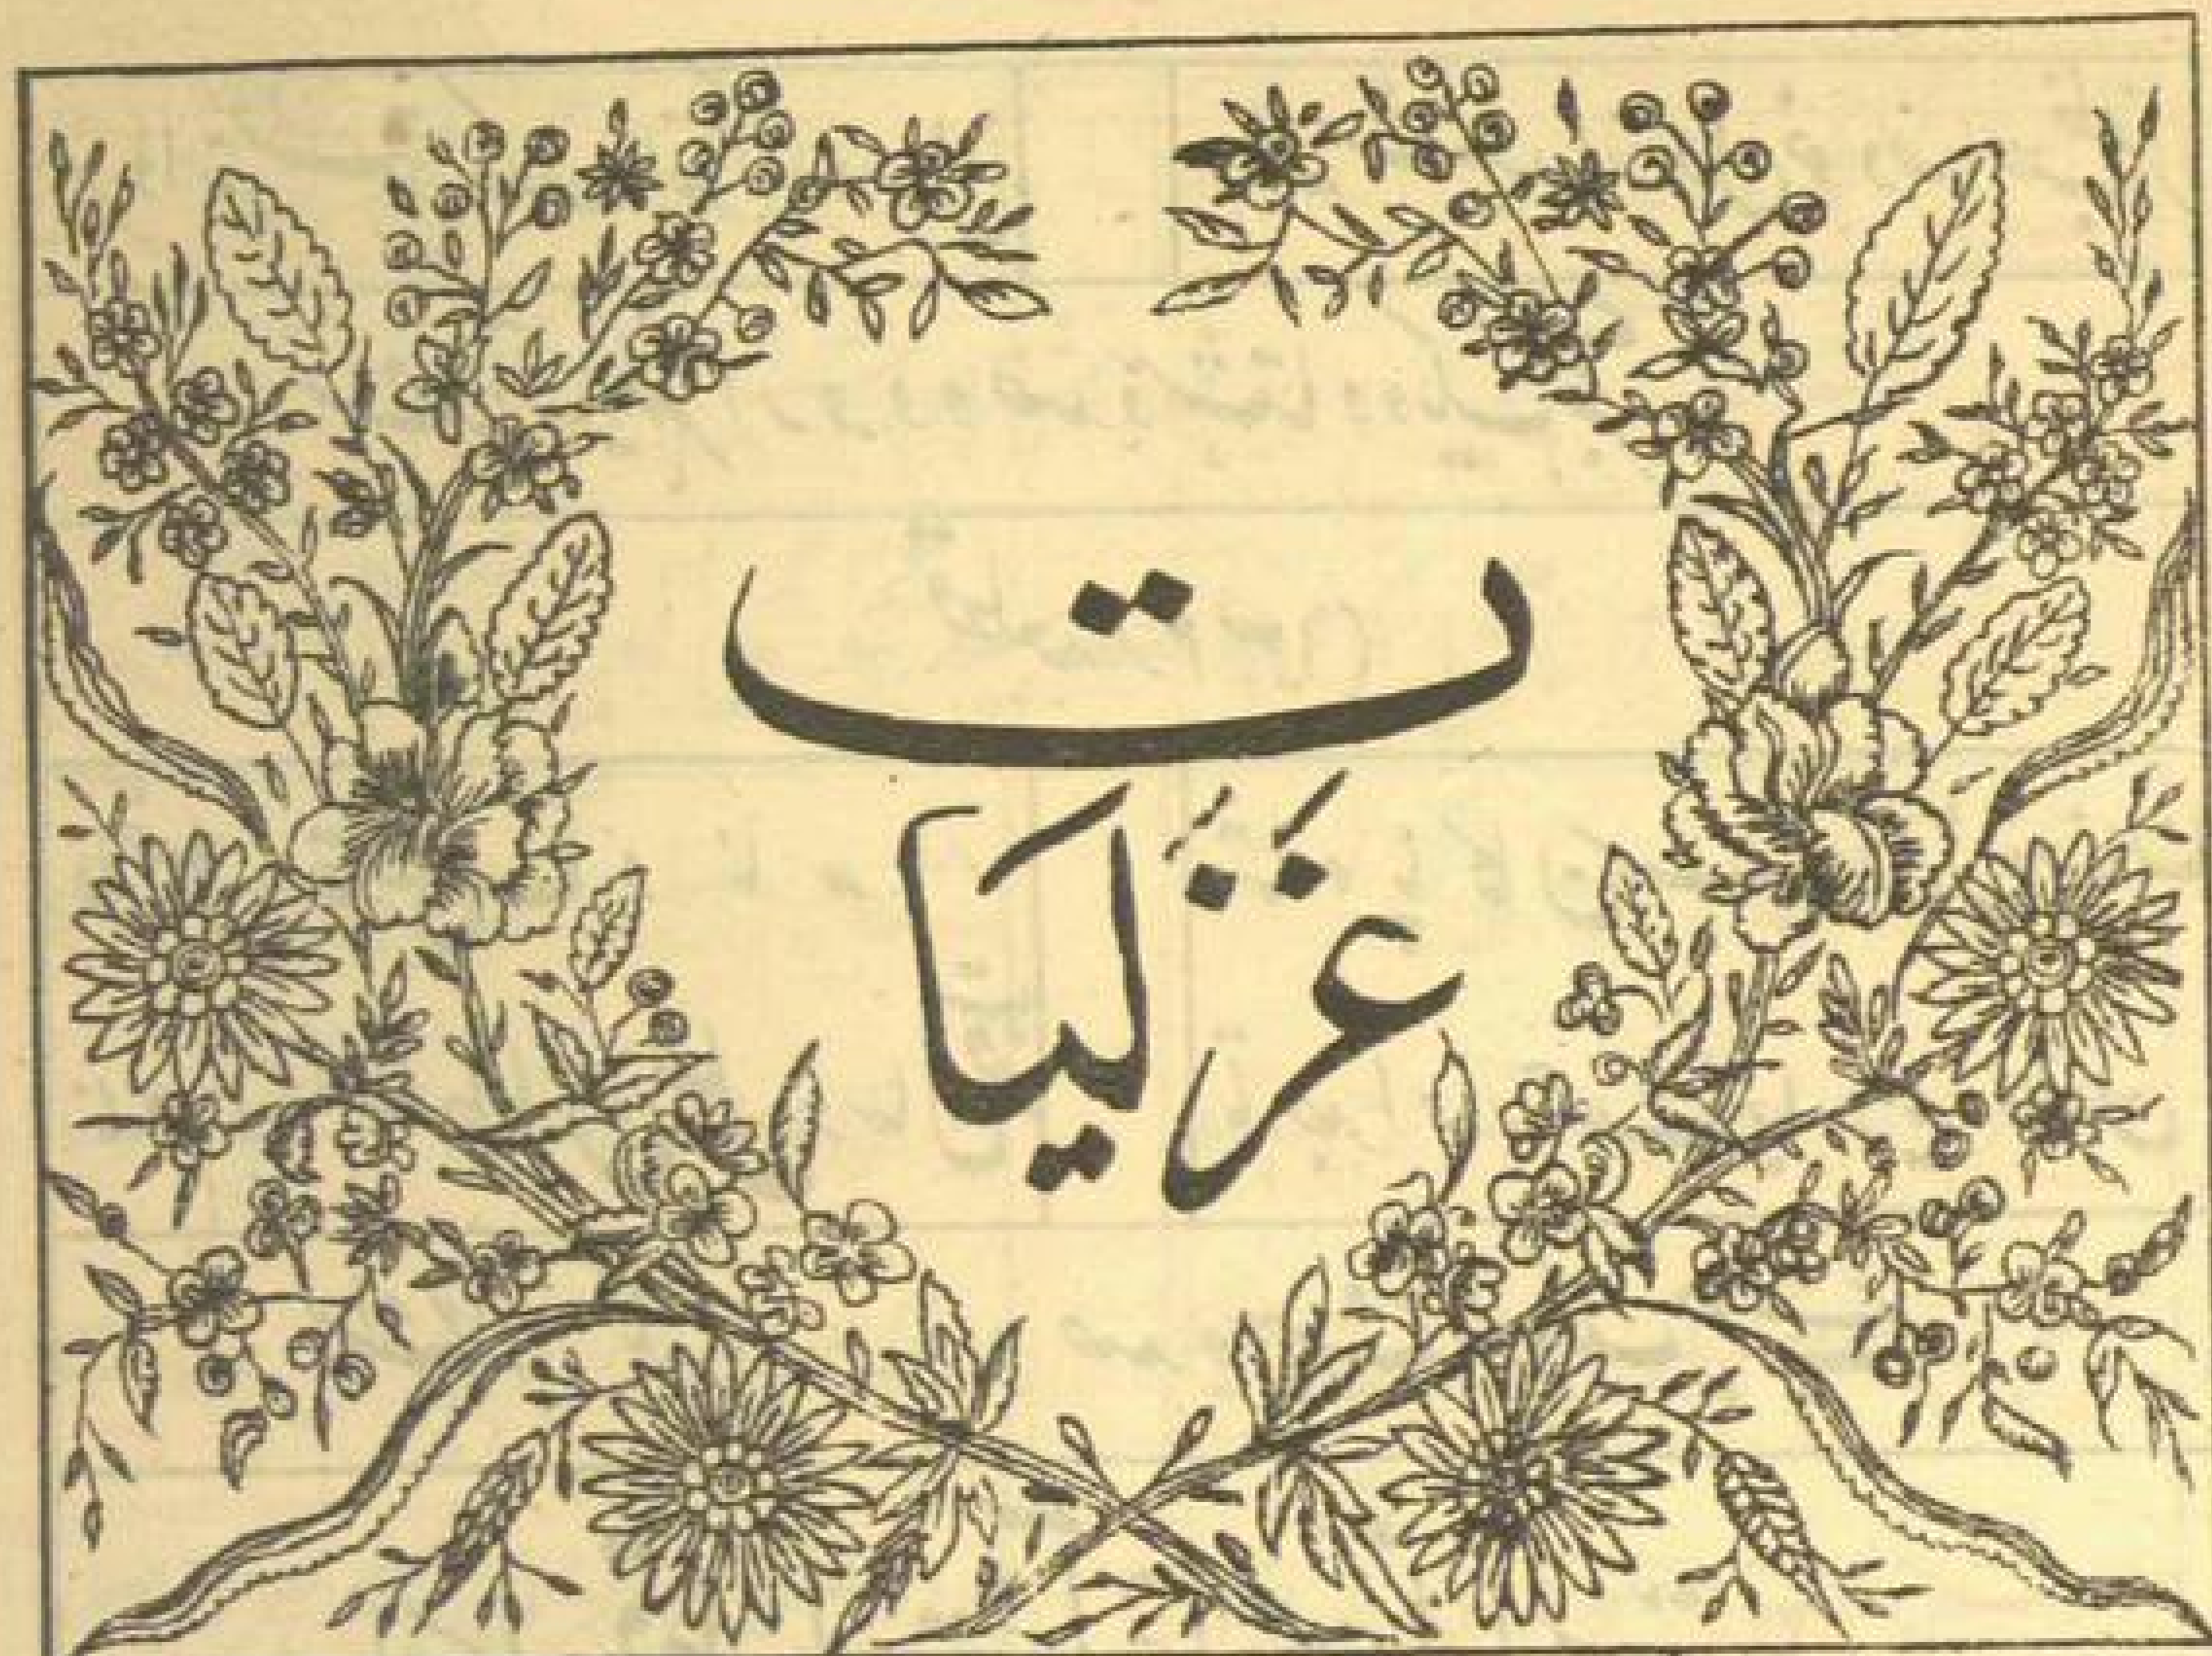 غَزَلیَات